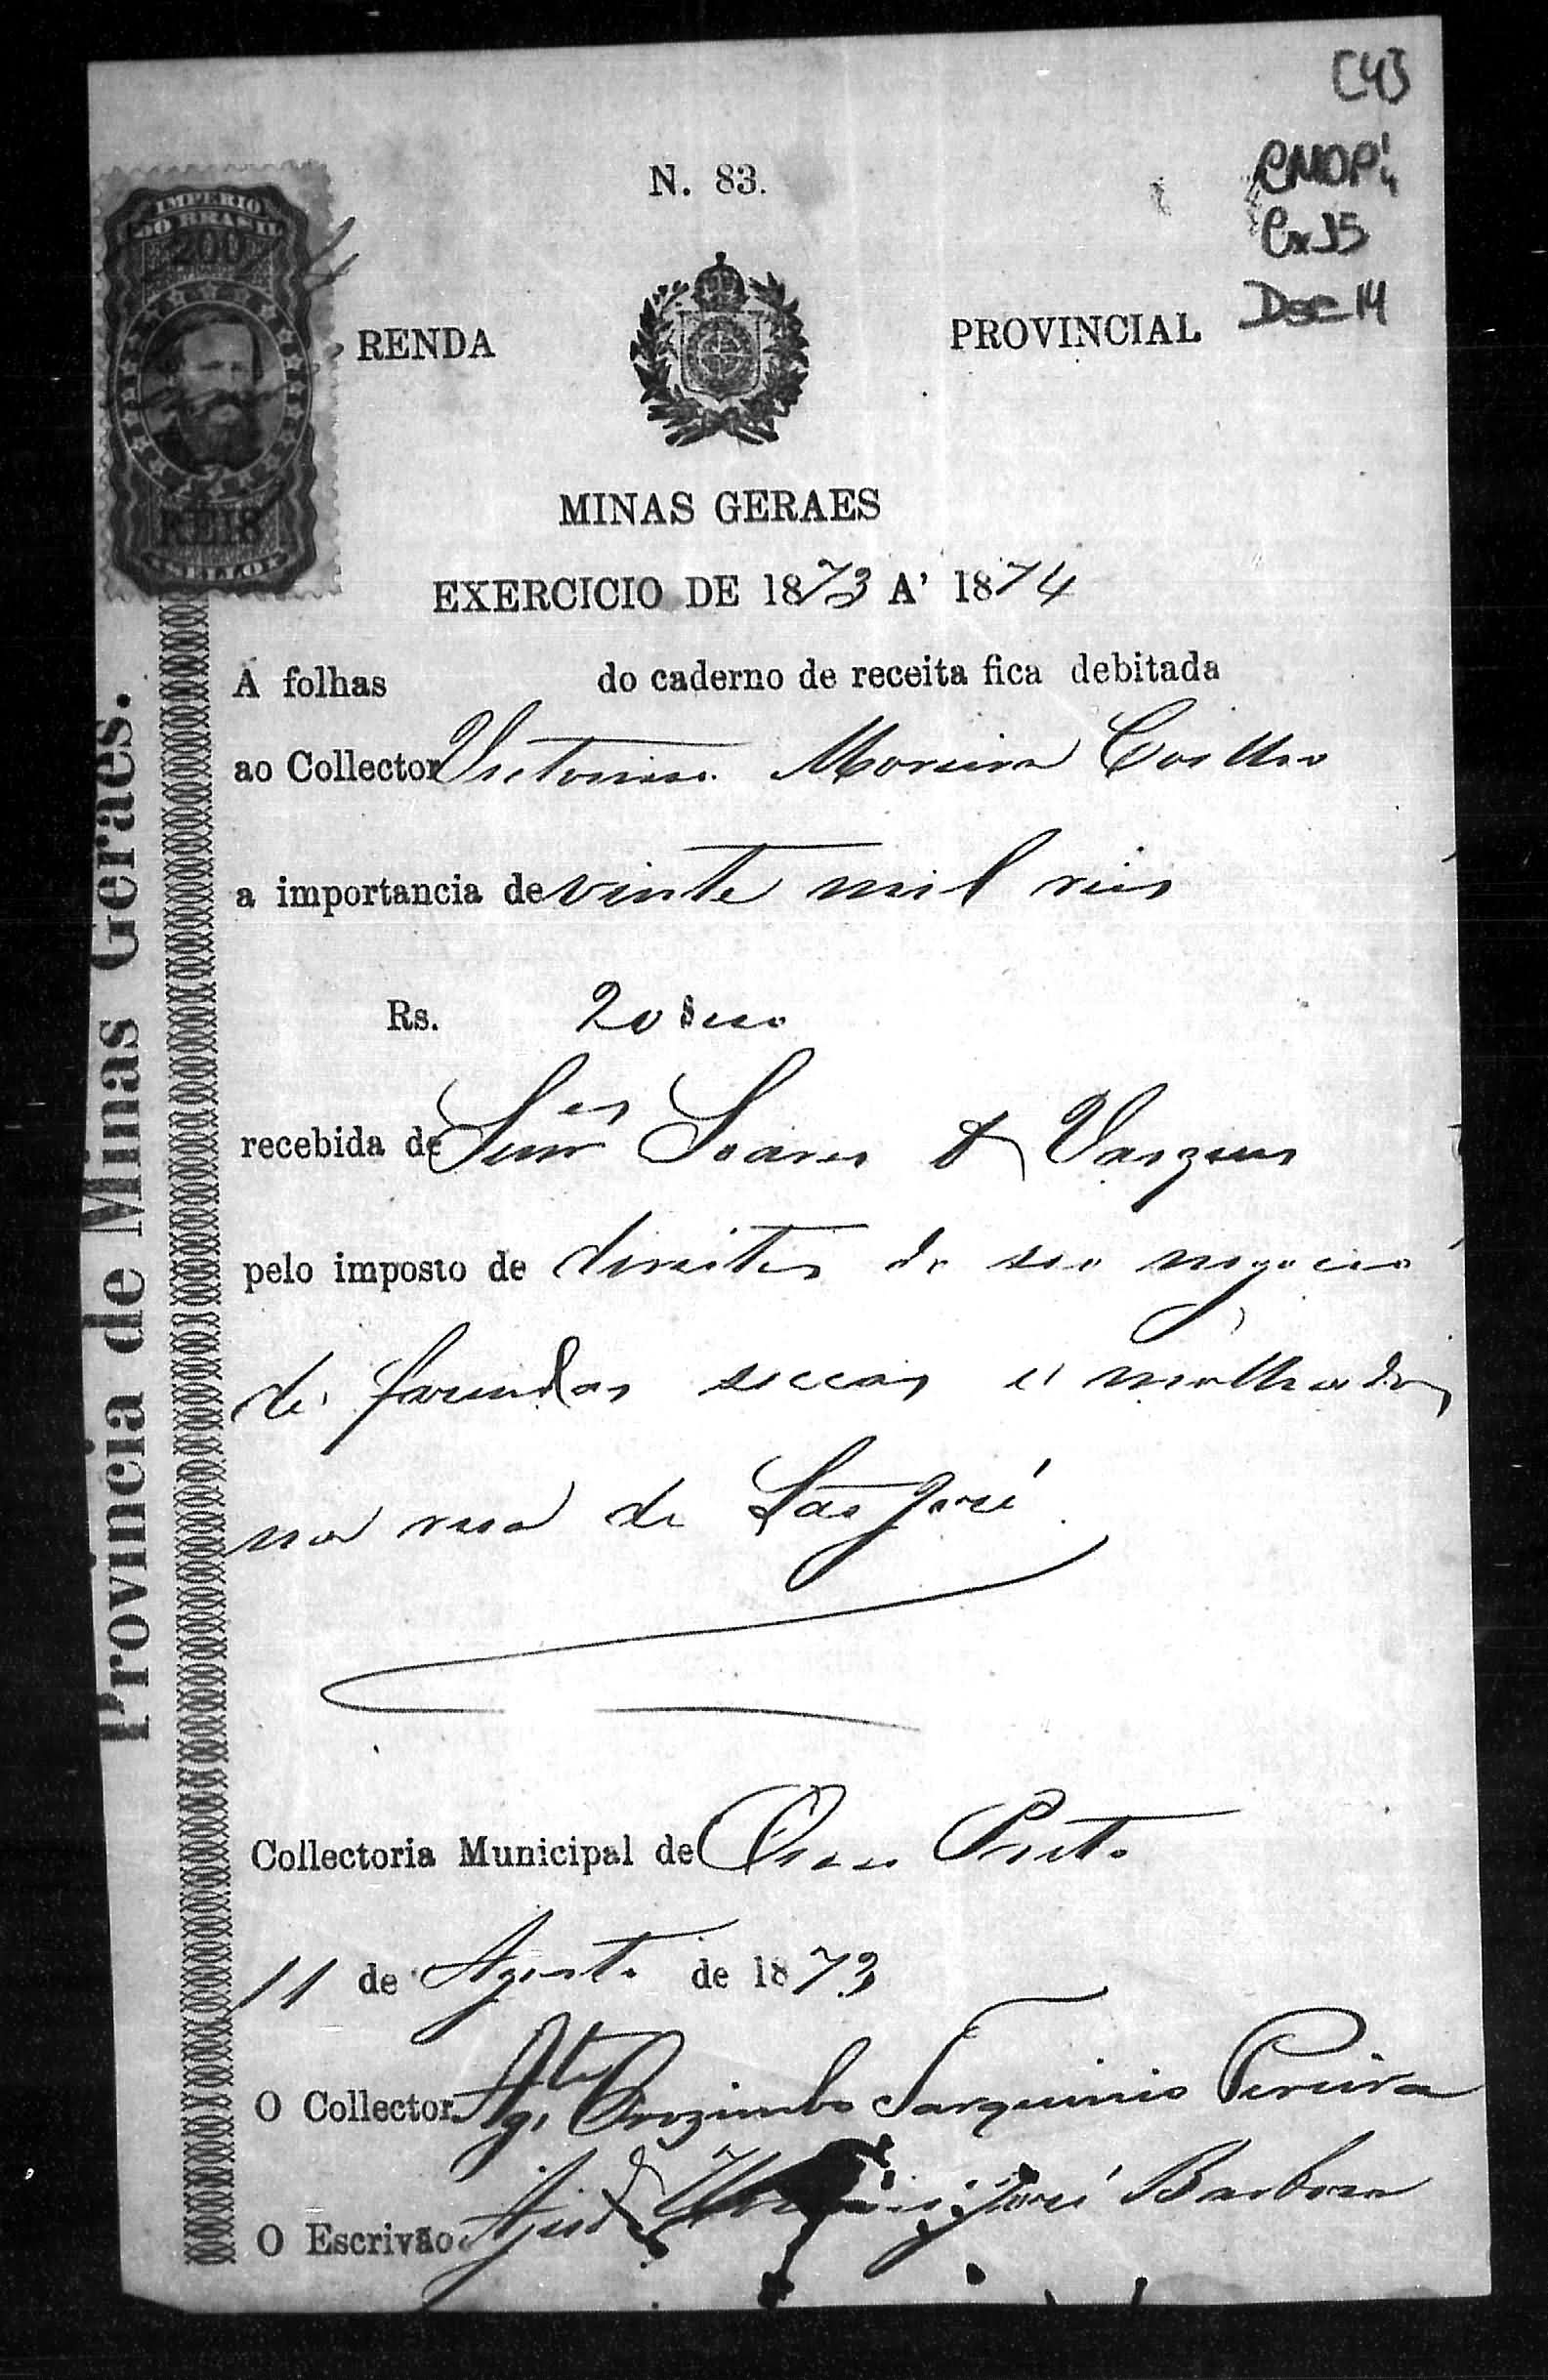 [43
CMOP
Cx 35
Doc 14
N. 83.
IMPERIO
DO BRASIL
200
REIS
SELLO
RENDA PROVINCIAL
MINAS GERAES
EXERCICIO DE 1873 A' 1874
Provincia de Minas Geraes.
Á folhas do caderno de receita fica debitada
ao Collector Victorino Moreira Coelho
a importancia de vinte mil reis
Rs. 20$000
recebida de Senr.es Soares & Vasques
pelo imposto de direitos de seo negocio
de fasendas seccas e molhados
na rua de São José
Collectoria Municipal de Ouro Preto
11 de Agosto de 1873
O Collector Ag.te Orozimbo Tarquinio Pereira
O Escrivão Ajud. José Barbosa